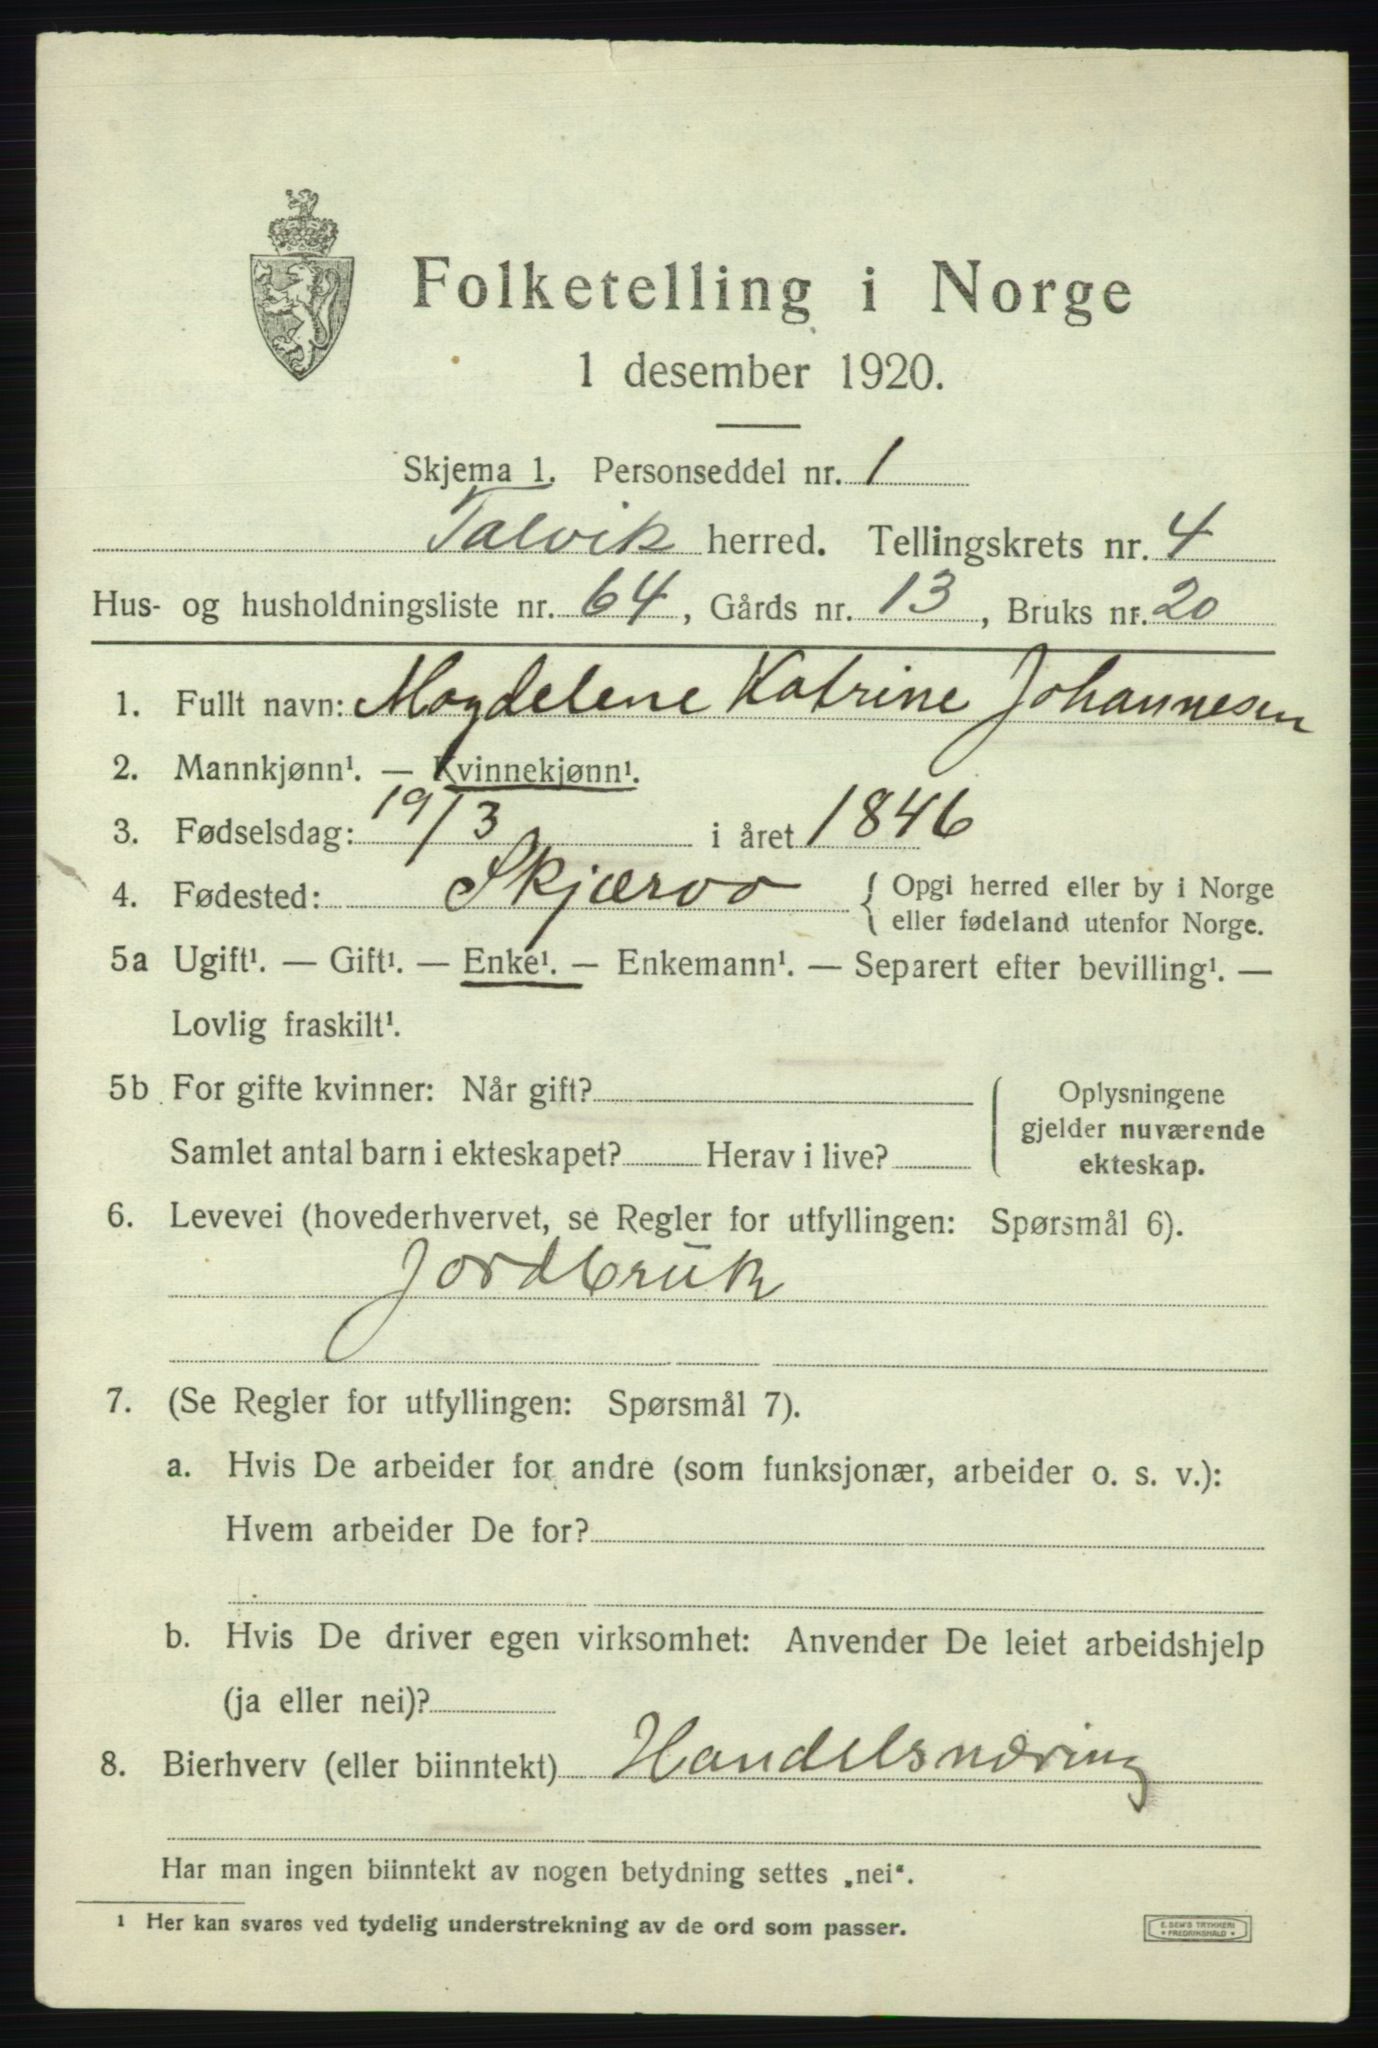 Folketelling i Norge
1 desember 1920.
Skjema 1. Personseddel nr. 1
Talvik herred. Tellingskrets nr. 4
Hus- og husholdningsliste nr. 64, Gårds nr. 13, Bruks nr. 20
1. Fullt navn: Magdelene Katrine Johannesen
2. Mannkjønn¹. — Kvinnekjønn¹.
3. Fødselsdag: 19/3 i året 1846
4. Fødested: Skjærvo { Opgi herred eller by i Norge
eller fødeland utenfor Norge.
5a Ugift¹. — Gift¹. — Enke¹. — Enkemann¹. — Separert efter bevilling¹. —
Lovlig fraskilt¹.
5b For gifte kvinner: Når gift?
Samlet antal barn i ekteskapet? Herav i live?
Oplysningene
gjelder nuværende
ekteskap.
6. Levevei (hovederhvervet, se Regler for utfyllingen: Spørsmål 6).
Jordbruk
7. (Se Regler for utfyllingen: Spørsmål 7).
a. Hvis De arbeider for andre (som funksjonær, arbeider o. s. v.):
Hvem arbeider De for?
b. Hvis De driver egen virksomhet: Anvender De leiet arbeidshjelp
(ja eller nei)?
8. Bierhverv (eller biinntekt) Handelsnæring
Har man ingen biinntekt av nogen betydning settes „nei“.
¹ Her kan svares ved tydelig understrekning av de ord som passer.
E. SEM'S TRYKKERI
* FREDRIKSHALD *